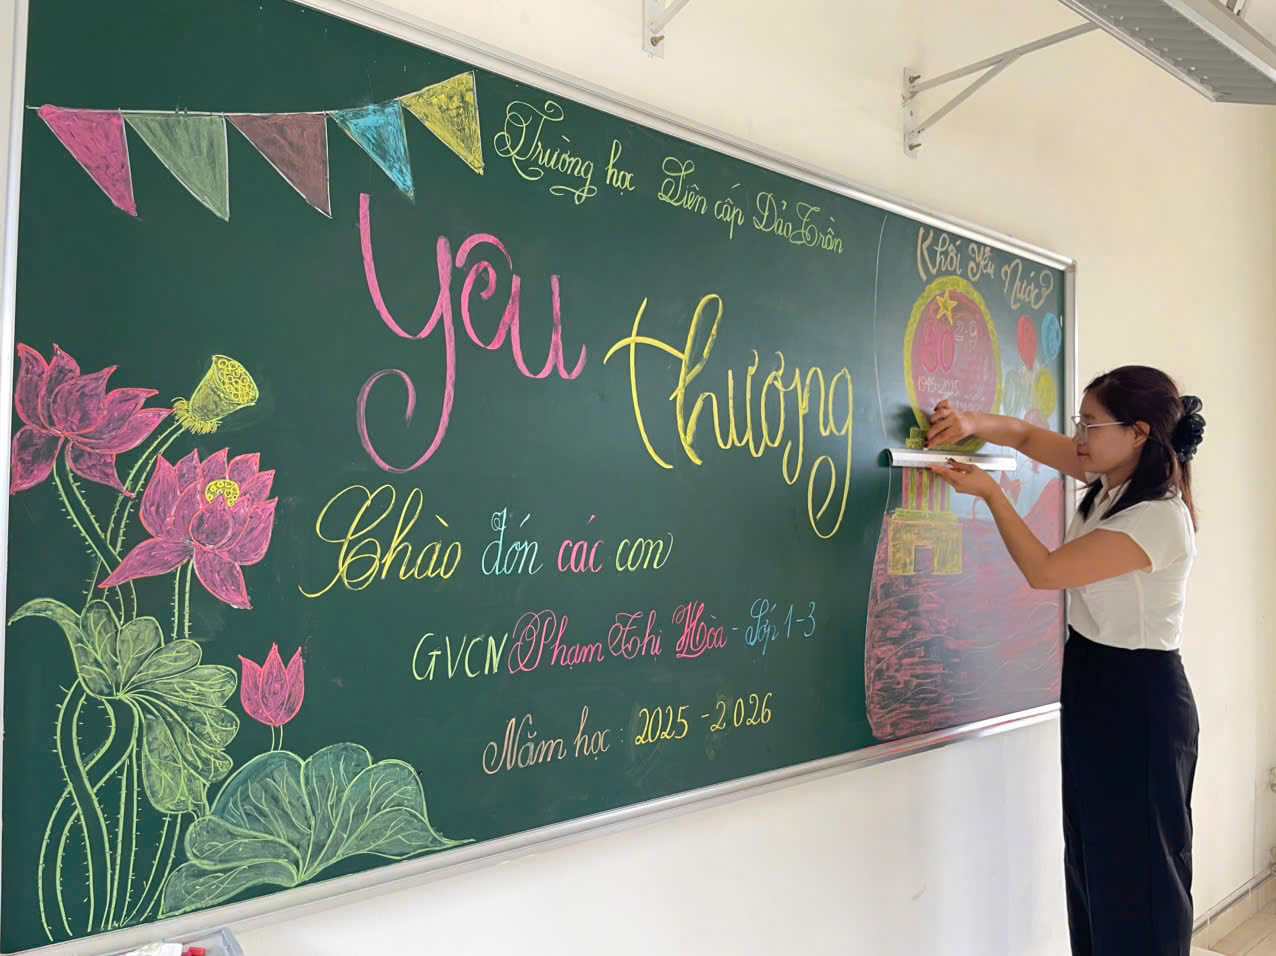 Trường học Liên cấp Đào Trần
Yêu thương
Chào đón các con
GVCN Phạm Thị Hòa - Lớp 1-3
Năm học : 2025 - 2026
Khối Yêu Nước
80
2-9
1945-2025